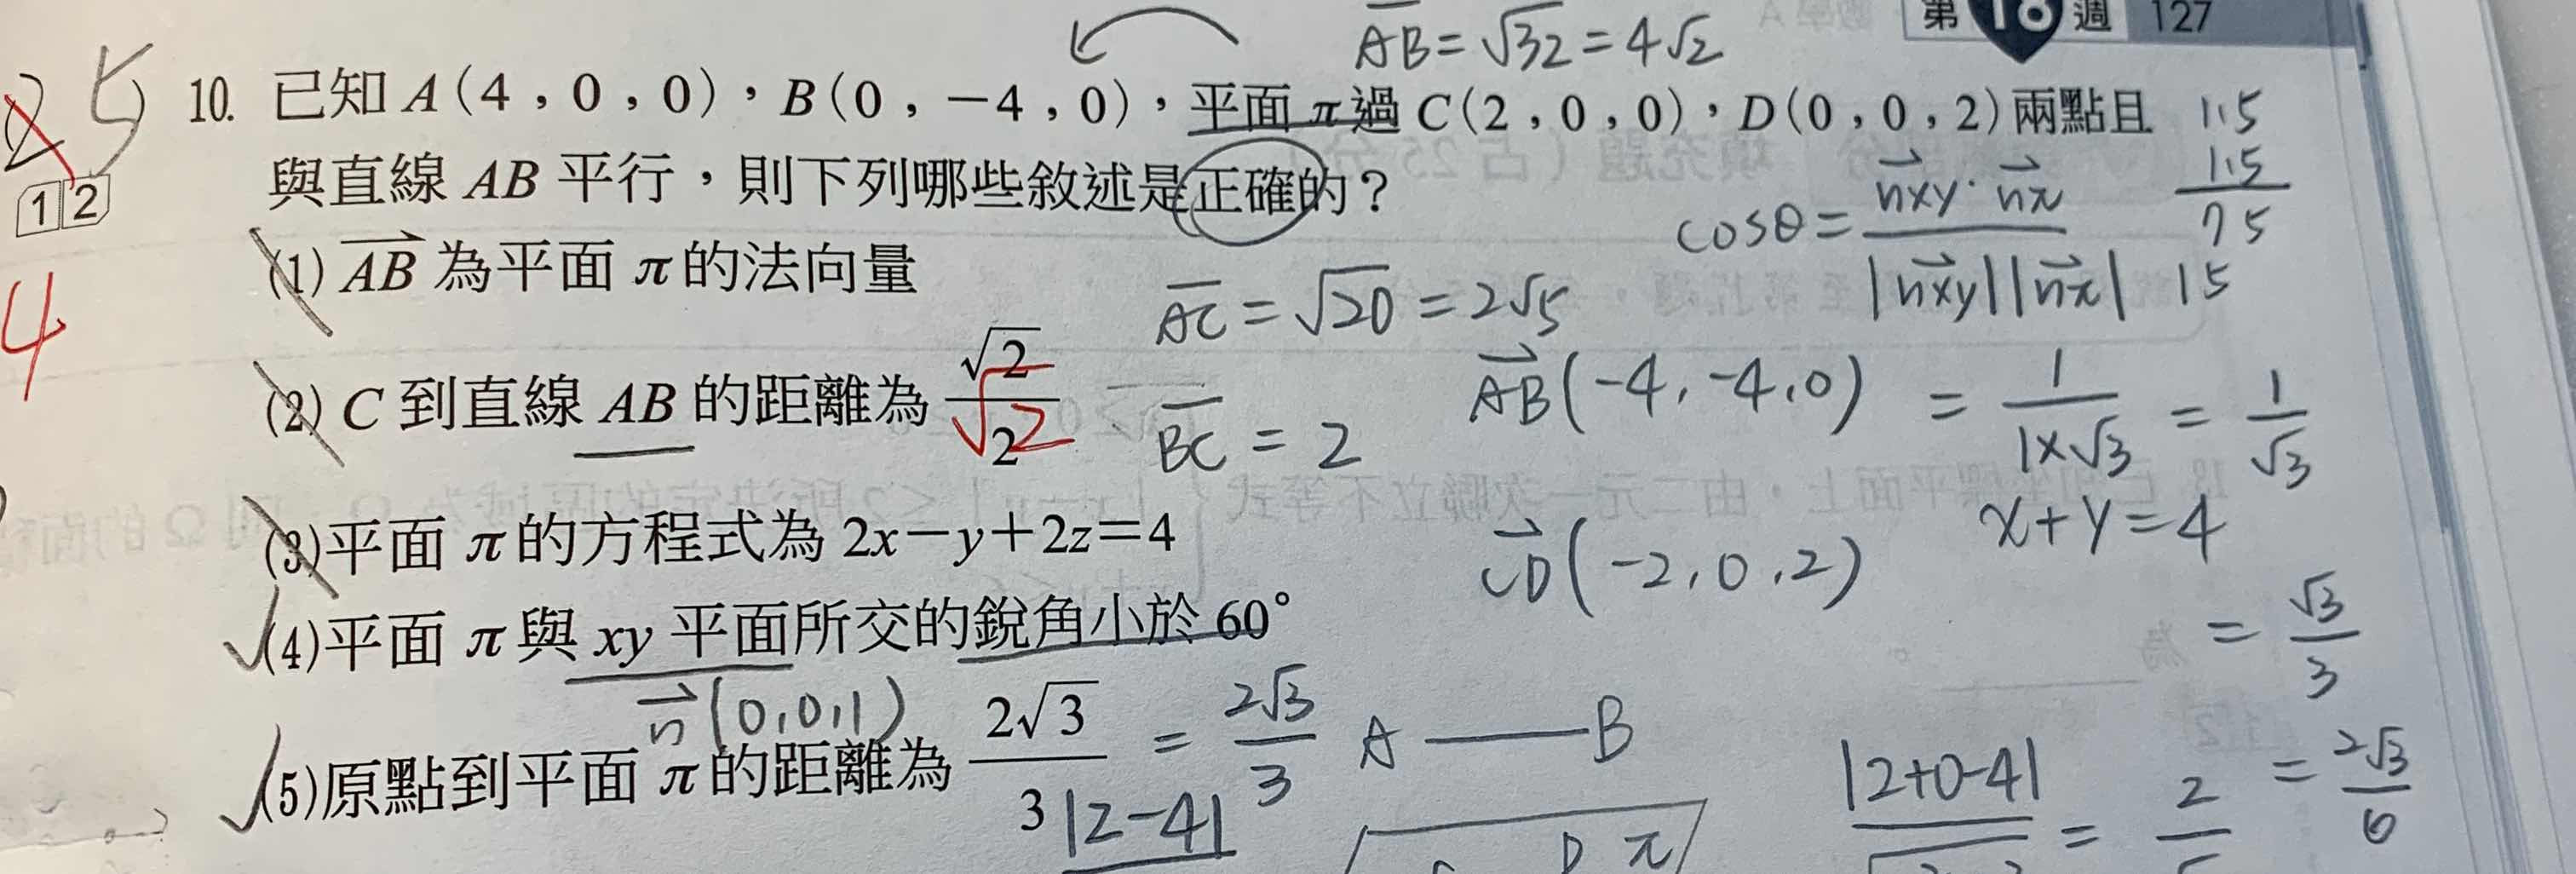 第18週 127
AB=√32=4√2
25
10. 已知 A(4,0,0),B(0,-4,0),平面 π 過 C(2,0,0),D(0,0,2)兩點且
與直線 AB 平行,則下列哪些敘述是正確的?
12
4
1.5
1.5
75
15
cosθ=nxy·nπ/|nxy||nπ|
(1) AB 為平面 π 的法向量
AC=√20=2√5
(2) C 到直線 AB 的距離為 √2/2
√2
BC=2
AB(-4,-4,0)
=1/1×√3=1/√3
x+y=4
=√3/3
(3)平面 π 的方程式為 2x-y+2z=4
CD(-2,0,2)
(4)平面 π 與 xy 平面所交的銳角小於 60°
n(0,0,1)
(5)原點到平面 π 的距離為 2√3/3
=2√3/3
A B
|2-4|
D π
|2+0-4|
=2
=2√3/6